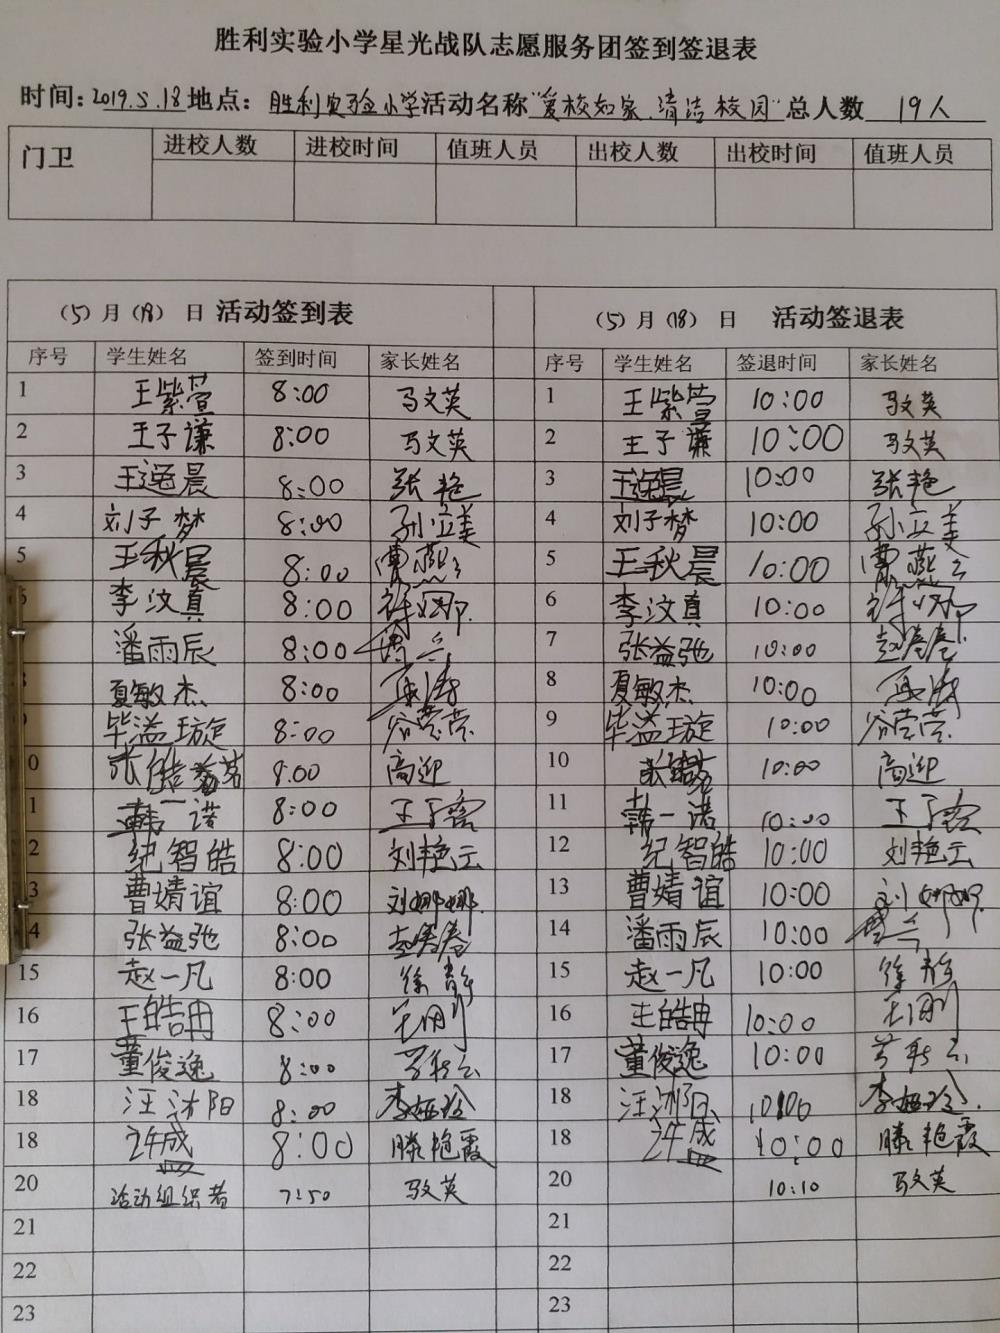 胜利实验小学星光战队志愿服务团签到签退表
时间: 2019.5.18 地点: 胜利实验小学 活动名称 "爱校如家、清洁校园" 总人数 19人
门卫 进校人数 进校时间 值班人员 出校人数 出校时间 值班人员
(5)月(18)日 活动签到表 (5)月(18)日 活动签退表
序号 学生姓名 签到时间 家长姓名 序号 学生姓名 签退时间 家长姓名
1 王紫萱 8:00 马文英 1 王紫萱 10:00 马文英
2 王子谦 8:00 马文英 2 王子谦 10:00 马文英
3 王逸晨 8:00 张艳 3 王逸晨 10:00 张艳
4 刘子梦 8:00 孙立美 4 刘子梦 10:00 孙立美
5 王秋晨 8:00 5 王秋晨 10:00
李汶真 8:00 许娜 6 李汶真 10:00 许娜
潘雨辰 8:00 7 张益弛 10:00 赵春春
夏敏杰 8:00 8 夏敏杰 10:00
毕溢璇 8:00 谷荣荣 9 毕溢璇 10:00 谷荣荣
0 8:00 高迎 10 10:00 高迎
1 韩一诺 8:00 11 韩一诺 10:00
2 纪智皓 8:00 刘艳云 12 纪智皓 10:00 刘艳云
3 曹婧谊 8:00 刘娜娜 13 曹婧谊 10:00 刘娜娜
4 张益弛 8:00 赵春春 14 潘雨辰 10:00
15 赵一凡 8:00 徐静 15 赵一凡 10:00 徐静
16 王皓冉 8:00 王刚 16 王皓冉 10:00 王刚
17 董俊逸 8:00 17 董俊逸 10:00
18 汪沐阳 8:00 18 汪沐阳 10:00
18 8:00 滕艳霞 18 10:00 滕艳霞
20 活动组织者 7:50 马文英 20 10:10 马文英
21 21
22 22
23 23